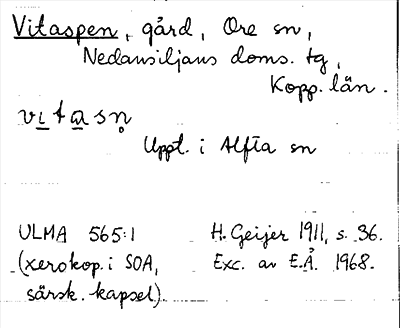 Vitaspen, gård, Ore sn,
Nedansiljans doms. tg,
Kopp. län.
vi̲ta̲sn̥
Uppt. i Alfta sn
ULMA 565:1
(xerokop. i SOA,
särsk. kapsel).
H. Geijer 1911, s. 36.
Exc. av E.Å. 1968.